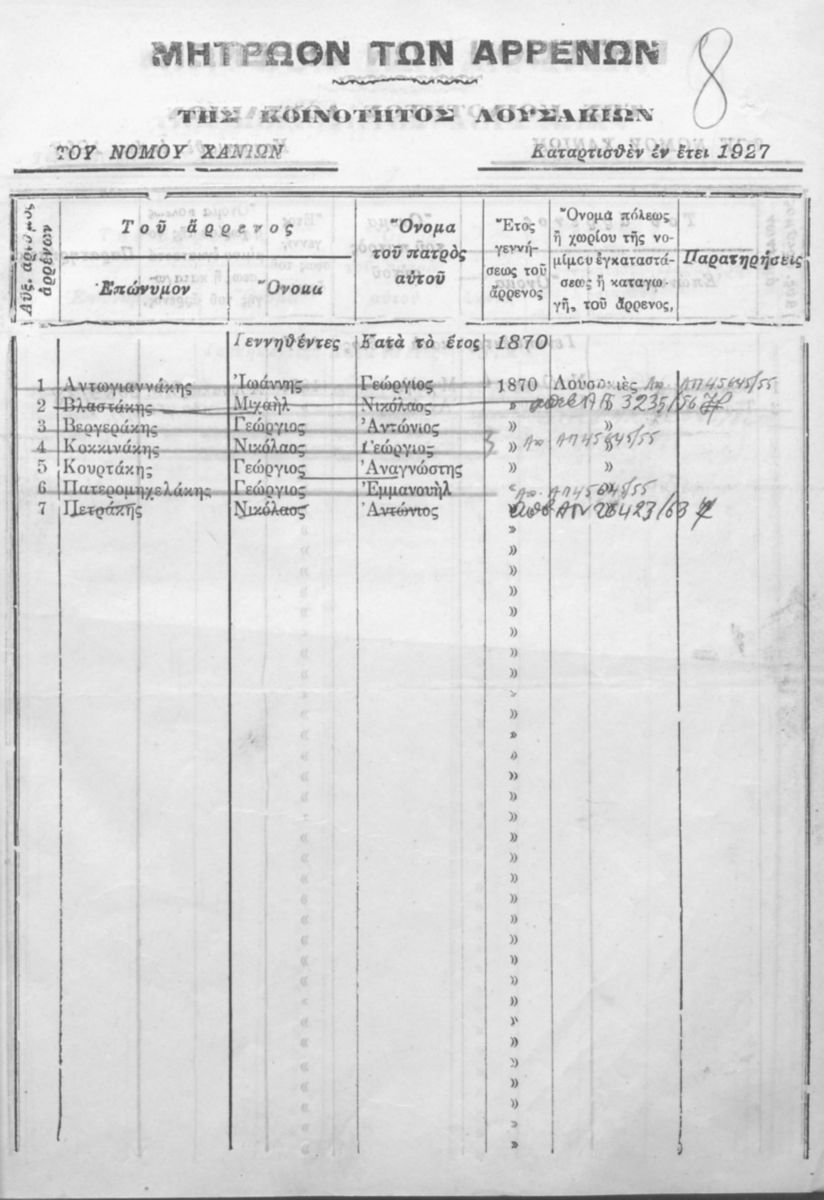 ΜΗΤΡΩΟΝ ΤΩΝ ΑΡΡΕΝΩΝ
8
ΤΗΣ ΚΟΙΝΟΤΗΤΟΣ ΛΟΥΣΑΚΙΩΝ
ΤΟΥ ΝΟΜΟΥ ΧΑΝΙΩΝ
Καταρτισθὲν ἐν ἔτει 1927
Αὔξ. ἀριθμὸς ἀρρένων
Τοῦ ἄρρενος
Ἐπώνυμον
Ὄνομα
Ὄνομα
τοῦ πατρὸς
αὐτοῦ
Ἔτος
γεννή-
σεως τοῦ
ἄρρενος
Ὄνομα πόλεως
ἢ χωρίου τῆς νο-
μίμου ἐγκαταστά-
σεως ἢ καταγω-
γῆς τοῦ ἄρρενος,
Παρατηρήσεις
Γεννηθέντες Κατὰ τὸ ἔτος 1870
1 Ἀντωγιαννάκης Ἰωάννης Γεώργιος 1870 Λουσακιὲς ΑΠ 45645/55
2 Βλαστάκης Μιχαὴλ Νικόλαος » 3235/56
3 Βεργεράκης Γεώργιος Ἀντώνιος » »
4 Κοκκινάκης Νικόλαος Γεώργιος » » ΑΠ 45645/55
5 Κουρτάκης Γεώργιος Ἀναγνώστης » »
6 Πατερομηχελάκης Γεώργιος Ἐμμανουὴλ » ΑΠ 45645/55
7 Πετράκης Νικόλαος Ἀντώνιος »
»
»
»
»
»
»
»
»
»
»
»
»
»
»
»
»
»
»
»
»
»
»
»
»
»
»
»
»
»
»
»